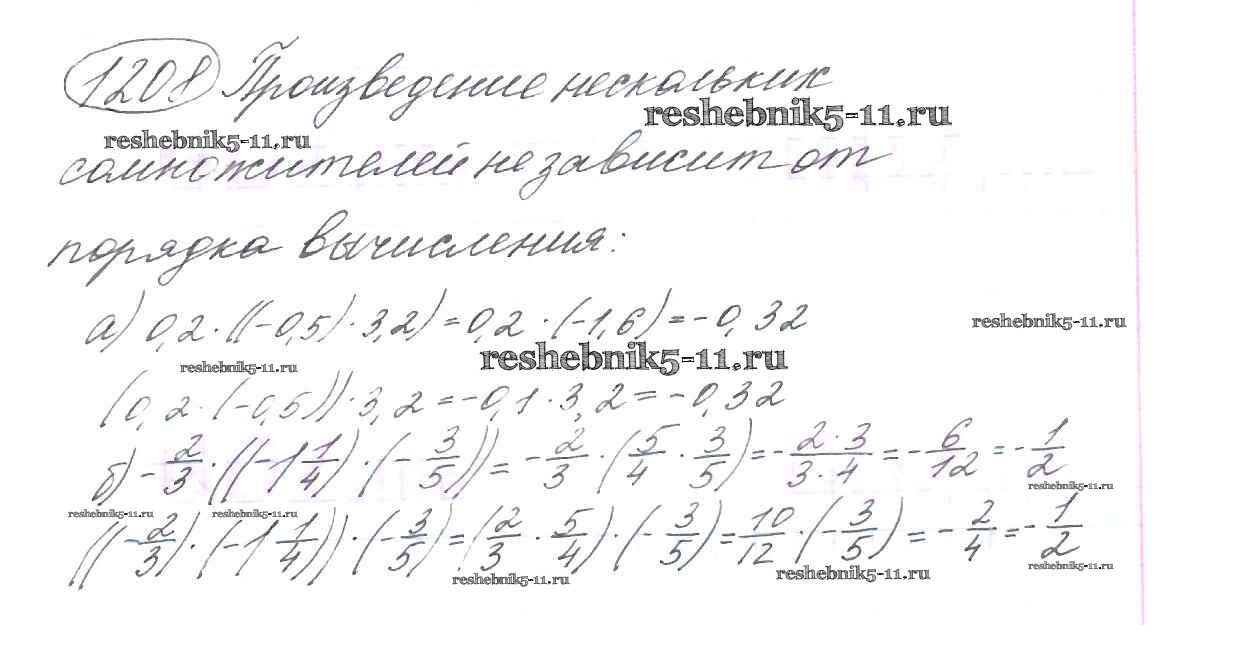 1208 Произведение нескольких
reshebnik5-11.ru
reshebnik5-11.ru
сомножителей не зависит от
порядка вычисления:
а) 0,2 · ((-0,5) · 3,2) = 0,2 · (-1,6) = -0,32
reshebnik5-11.ru
reshebnik5-11.ru
reshebnik5-11.ru
(0,2 · (-0,5)) · 3,2 = -0,1 · 3,2 = -0,32
б) -2/3 · ((-1 1/4) · (-3/5)) = -2/3 · (5/4 · 3/5) = -2·3/3·4 = -6/12 = -1/2
reshebnik5-11.ru
reshebnik5-11.ru
reshebnik5-11.ru
((-2/3) · (-1 1/4)) · (-3/5) = (2/3 · 5/4) · (-3/5) = 10/12 · (-3/5) = -2/4 = -1/2
reshebnik5-11.ru
reshebnik5-11.ru
reshebnik5-11.ru